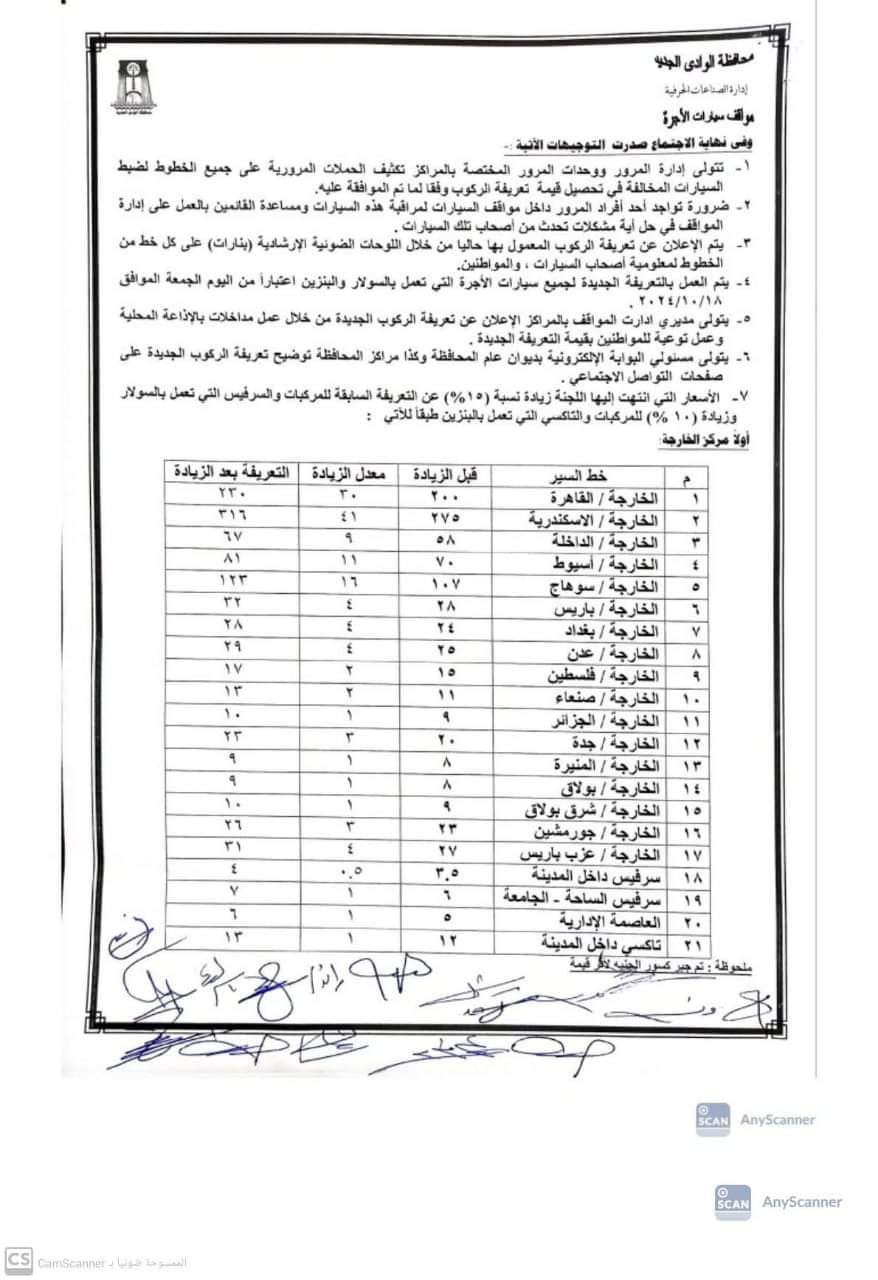 محافظة الوادى الجديد
إدارة الصناعات الحرفية
مواقف سيارات الأجرة
وفى نهاية الاجتماع صدرت التوجيهات الآتية :-
١- تتولى إدارة المرور ووحدات المرور المختصة بالمراكز تكثيف الحملات المرورية على جميع الخطوط لضبط
السيارات المخالفة في تحصيل قيمة تعريفة الركوب وفقا لما تم الموافقة عليه.
٢- ضرورة تواجد أحد أفراد المرور داخل مواقف السيارات لمراقبة هذه السيارات ومساعدة القائمين بالعمل على إدارة
المواقف في حل أية مشكلات تحدث من أصحاب تلك السيارات .
٣- يتم الإعلان عن تعريفة الركوب المعمول بها حاليا من خلال اللوحات الضوئية الإرشادية (بنارات) على كل خط من
الخطوط لمعلومية أصحاب السيارات ، والمواطنين.
٤- يتم العمل بالتعريفة الجديدة لجميع سيارات الأجرة التي تعمل بالسولار والبنزين اعتباراً من اليوم الجمعة الموافق
٢٠٢٤/١٠/١٨ .
٥- يتولى مديري ادارت المواقف بالمراكز الإعلان عن تعريفة الركوب الجديدة من خلال عمل مداخلات بالإذاعة المحلية
وعمل توعية للمواطنين بقيمة التعريفة الجديدة .
٦- يتولى مسئولي البوابة الإلكترونية بديوان عام المحافظة وكذا مراكز المحافظة توضيح تعريفة الركوب الجديدة على
صفحات التواصل الاجتماعي .
٧- الأسعار التي انتهت إليها اللجنة زيادة نسبة (١٥%) عن التعريفة السابقة للمركبات والسرفيس التي تعمل بالسولار
وزيادة (١٠ %) للمركبات والتاكسي التي تعمل بالبنزين طبقاً للآتي :
أولاً مركز الخارجة:
م خط السير قبل الزيادة معدل الزيادة التعريفة بعد الزيادة
١ الخارجة / القاهرة ٢٠٠ ٣٠ ٢٣٠
٢ الخارجة / الاسكندرية ٢٧٥ ٤١ ٣١٦
٣ الخارجة / الداخلة ٥٨ ٩ ٦٧
٤ الخارجة / أسيوط ٧٠ ١١ ٨١
٥ الخارجة / سوهاج ١٠٧ ١٦ ١٢٣
٦ الخارجة / باريس ٢٨ ٤ ٣٢
٧ الخارجة / بغداد ٢٤ ٤ ٢٨
٨ الخارجة / عدن ٢٥ ٤ ٢٩
٩ الخارجة / فلسطين ١٥ ٢ ١٧
١٠ الخارجة / صنعاء ١١ ٢ ١٣
١١ الخارجة / الجزائر ٩ ١ ١٠
١٢ الخارجة / جدة ٢٠ ٣ ٢٣
١٣ الخارجة / المنيرة ٨ ١ ٩
١٤ الخارجة / بولاق ٨ ١ ٩
١٥ الخارجة / شرق بولاق ٩ ١ ١٠
١٦ الخارجة / جورمشين ٢٣ ٣ ٢٦
١٧ الخارجة / عزب باريس ٢٧ ٤ ٣١
١٨ سرفيس داخل المدينة ٣,٥ ٠,٥ ٤
١٩ سرفيس الساحة - الجامعة ٦ ١ ٧
٢٠ العاصمة الإدارية ٥ ١ ٦
٢١ تاكسي داخل المدينة ١٢ ١ ١٣
ملحوظة : تم جبر كسور الجنيه لأقر قيمة
SCAN AnyScanner
SCAN AnyScanner
CS CamScanner الممسوحة ضوئيا بـ